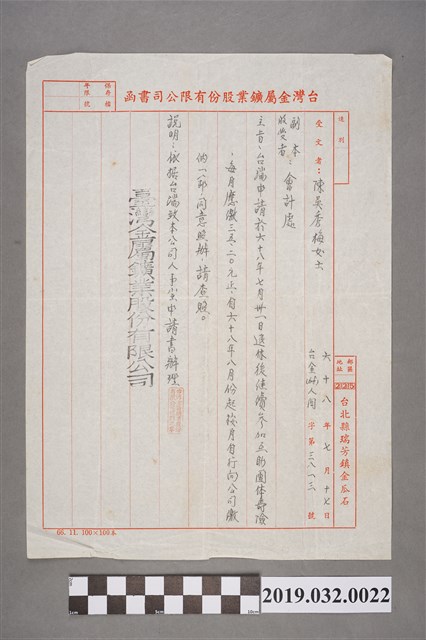 台灣金屬鑛業股份有限公司書函
保存檔
年限號
速別
受文者：陳吳秀梅女士
副本
收受者：會計處
郵區
地址
台北縣瑞芳鎮金瓜石
六十八年七月十七日
台金(68)人關字第三八一三號
主旨：台端申請於六十八年七月卅一日退休後繼續參加互助團体壽險
，每月應繳三五.二〇元正，自六十八年八月份起按月自行向公司繳
納一節，同意照辦，請查照。
說明：依据台端致本公司人事室申請書辦理
臺灣金屬鑛業股份有限公司
66.11.100×100本
2019.032.0022